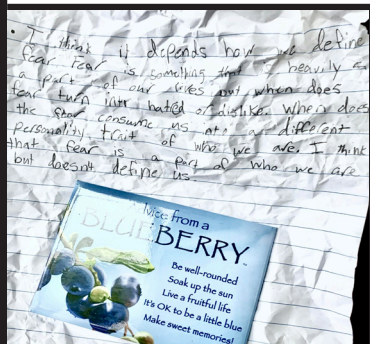 I think it depends how we define
fear fear is something that is heavily
a part of our lives but when does
fear turn into hatred or dislike. When does
the fear consume us into a different
personality trait of who we are. I think
that fear is a part of who we are
but doesn't define us.
Advice from a
BLUEBERRY
Be well-rounded
Soak up the sun
Live a fruitful life
It's OK to be a little blue
Make sweet memories!